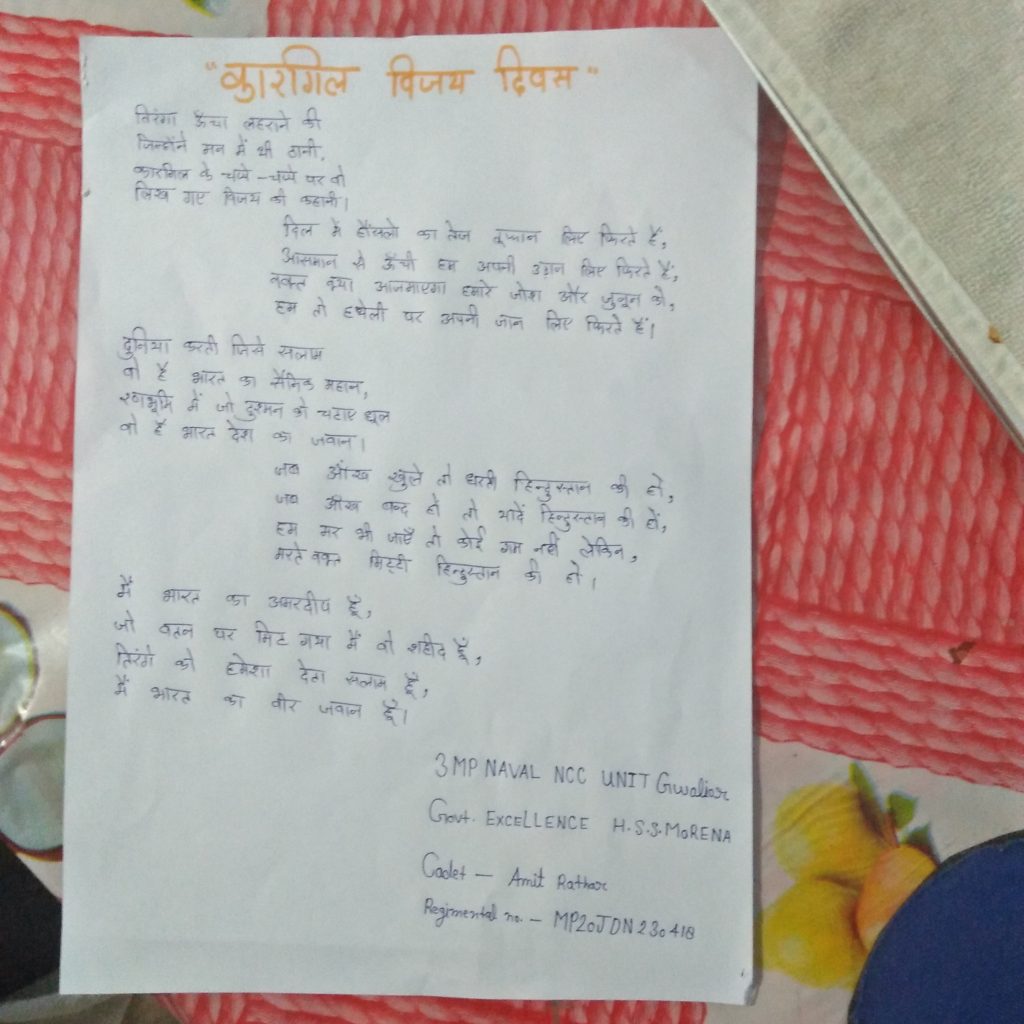 "कारगिल विजय दिवस"
तिरंगा ऊँचा लहराने की
जिन्होंने मन में थी ठानी,
कारगिल के चप्पे-चप्पे पर वो
लिख गए विजय की कहानी।
दिल में हौंसलो का तेज तूफान लिए फिरते है,
आसमान से ऊँची हम अपनी उड़ान लिए फिरते हैं,
वक्त क्या आजमाएगा हमारे जोश और जुनून को,
हम तो हथेली पर अपनी जान लिए फिरते हैं।
दुनिया करती जिसे सलाम
वो है भारत का सैनिक महान,
रणभूमि में जो दुश्मन को चटाए धूल
वो है भारत देश का जवान।
जब आँख खुले तो धरती हिन्दुस्तान की हो,
जब आँख बन्द हो तो यादें हिन्दुस्तान की हों,
हम मर भी जाएँ तो कोई गम नहीं लेकिन,
मरते वक्त मिट्टी हिन्दुस्तान की हो।
मैं भारत का अमरदीप हूँ,
जो वतन पर मिट गया मैं वो शहीद हूँ,
तिरंगे को हमेशा देता सलाम हूँ,
मैं भारत का वीर जवान हूँ।
3 MP NAVAL NCC UNIT Gwalior
Govt. EXCELLENCE H.S.S. MORENA
Cadet - Amit Rathor
Regimental no. - MP20JDN230418